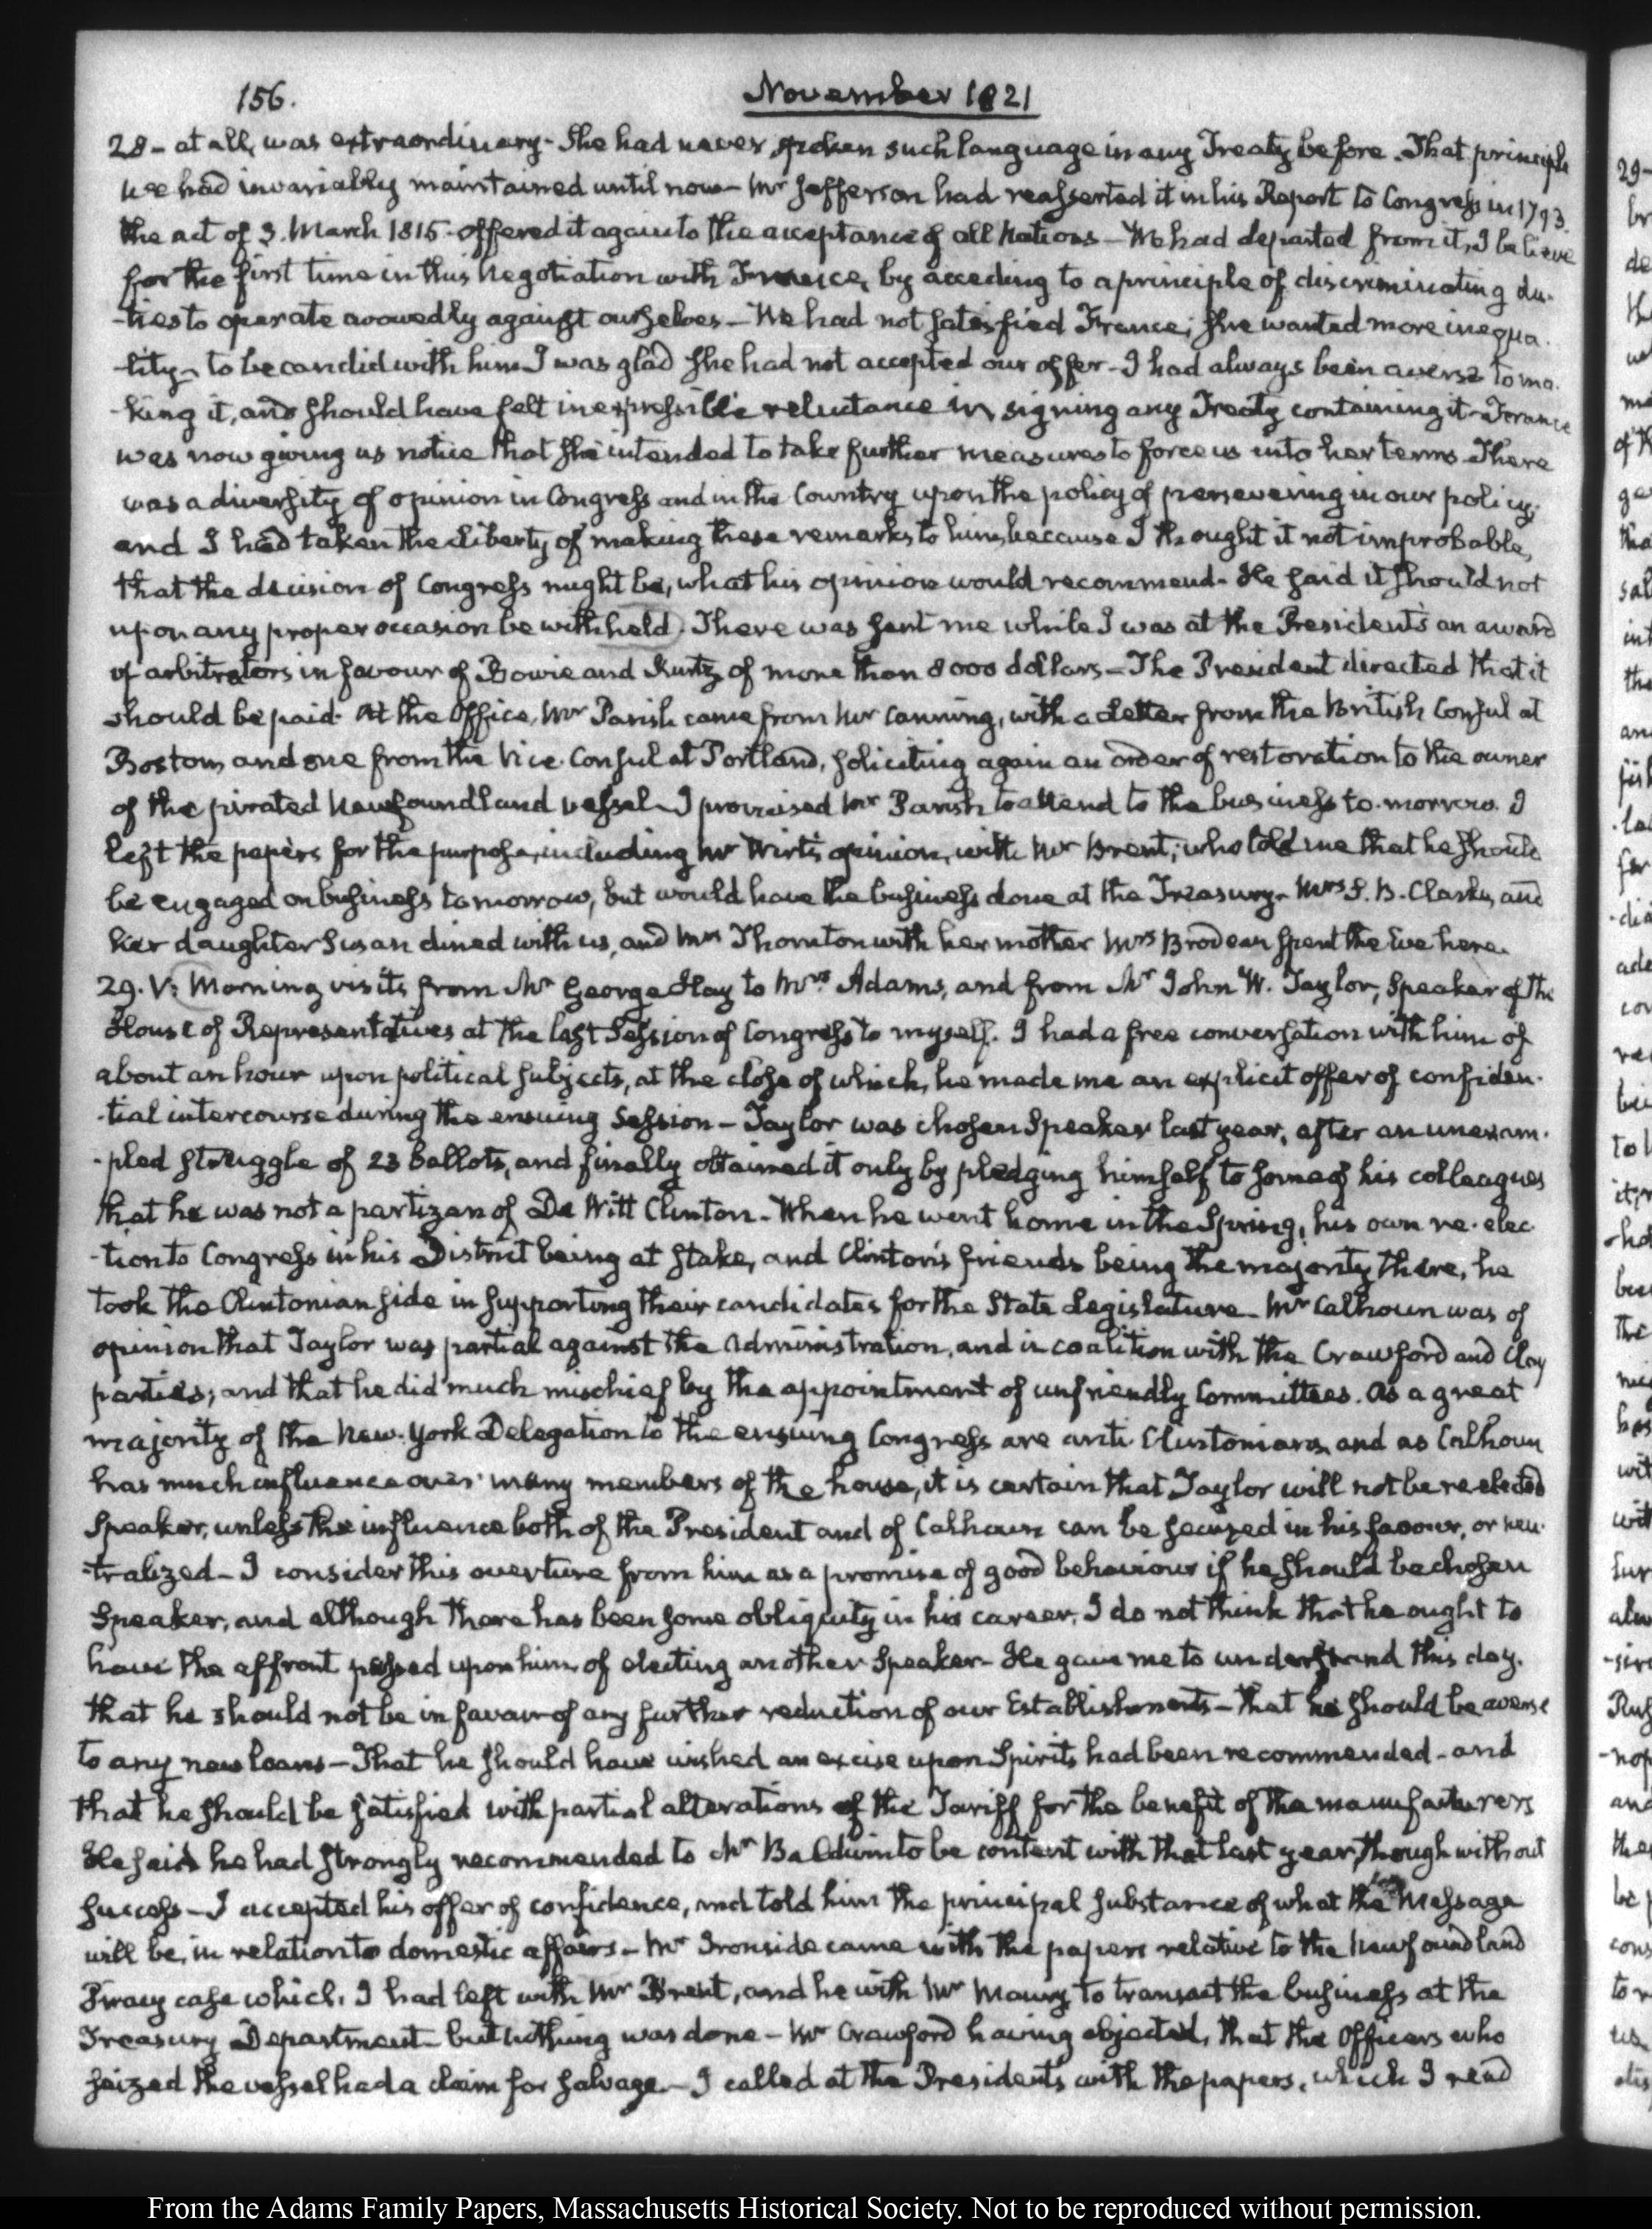 156.
November 1821
28 - at all, was extraordinary - She had never spoken such language in any Treaty before. That principle
we had invariably maintained until now - Mr Jefferson had reasserted it in his Report to Congress in 1793.
the act of 3. March 1815. offered it again to the acceptance of all Nations - We had departed from it, I believe
for the first time in this negotiation with France, by acceding to a principle of discriminating du-
-ties to operate avowedly against ourselves - We had not satisfied France; she wanted more inequa-
-lity - to be candid with him I was glad she had not accepted our offer - I had always been averse to ma-
-king it, and should have felt inexpressible reluctance in signing any Treaty containing it - France
was now giving us notice that she intended to take further measures to force us into her terms. There
was a diversity of opinion in Congress and in the Country upon the policy of persevering in our policy;
and I had taken the liberty of making these remarks to him, because I thought it not improbable,
that the decision of Congress might be, what his opinion would recommend - He said it should not
upon any proper occasion be withheld. There was sent me while I was at the President's an award
of arbitrators in favour of Bowie and Kurtz, of more than 8000 dollars - The President directed that it
should be paid. At the Office, Mr Parish came from Mr Canning, with a Letter from the British Consul at
Boston, and one from the Vice-Consul at Portland, soliciting again an order of restoration to the owner
of the pirated Newfoundland vessel - I promised Mr Parish to attend to the business to-morrow. I
left the papers for the purpose, including Mr Wirt's opinion, with Mr Brent; who told me that he should
be engaged on business tomorrow, but would have the business done at the Treasury - Mrs S. B. Clark, and
her daughter Susan dined with us, and Mrs Thornton with her mother Mrs Brodeau spent the Eve here.
29. V: Morning visits from Mr George Hay to Mrs Adams, and from Mr John W. Taylor, Speaker of the
House of Representatives at the last Session of Congress to myself. I had a free conversation with him of
about an hour upon political subjects, at the close of which, he made me an explicit offer of confiden-
-tial intercourse during the ensuing Session - Taylor was chosen Speaker last year, after an unexam-
-pled struggle of 23 ballots, and finally obtained it only by pledging himself to some of his colleagues
that he was not a partizan of De Witt Clinton - When he went home in the Spring, his own re-elec-
-tion to Congress in his District being at stake, and Clinton's friends being the majority there, he
took the Clintonian side in supporting their candidates for the State Legislature - Mr Calhoun was of
opinion that Taylor was partial against the Administration, and in coalition with the Crawford and Clay
parties; and that he did much mischief by the appointment of unfriendly Committees. As a great
majority of the New-York Delegation to the ensuing Congress are anti-Clintonians, and as Calhoun
has much influence over many members of the house, it is certain that Taylor will not be re-elected
Speaker, unless the influence both of the President and of Calhoun can be secured in his favour, or neu-
-tralized - I consider this overture from him as a promise of good behaviour if he should be chosen
Speaker, and although there has been some obliquity in his career, I do not think that he ought to
have the affront passed upon him, of electing another Speaker - He gave me to understand this day.
that he should not be in favour of any further reduction of our Establishments - that he should be averse
to any new loans - That he should have wished an excise upon Spirits had been recommended - and
that he should be satisfied with partial alterations of the Tariff for the benefit of the manufacturers
He said he had strongly recommended to Mr Baldwin to be content with that last year, though without
success - I accepted his offer of confidence, and told him the principal substance of what the Message
will be, in relation to domestic affairs - Mr Ironside came with the papers relative to the Newfoundland
Piracy case which, I had left with Mr Brent, and he with Mr Maury to transact the business at the
Treasury Department - but nothing was done - Mr Crawford having objected, that the Officers who
seized the vessel had a claim for salvage - I called at the President's with the papers, which I read
From the Adams Family Papers, Massachusetts Historical Society. Not to be reproduced without permission.